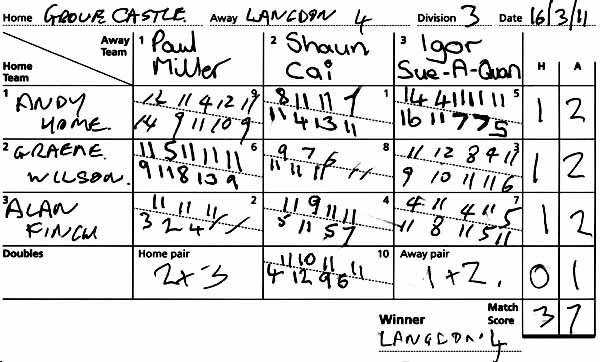 Home GROVE CASTLE Away LANGDON 4 Division 3 Date 16/3/11
Away Team 1 Paul Miller 2 Shaun Cai 3 Igor Sue-A-Quan H A
Home Team
1 ANDY HOME 9 12 11 4 12 11 1 8 11 11 7 5 14 4 11 11 11 1 2
14 9 11 10 9 11 4 13 11 16 11 7 7 5
2 GRAEME WILSON 6 11 5 11 11 11 8 9 7 6 3 11 12 8 4 11 1 2
9 11 8 13 9 11 11 11 9 10 11 11 6
3 ALAN FINCH 2 11 11 11 4 11 9 11 11 7 4 11 4 11 5 1 2
3 2 4 5 11 5 7 11 8 11 5 11
Doubles Home pair 10 11 10 11 11 Away pair
2 x 3 4 12 9 6 1 + 2 0 1
Match Score 3 7
Winner
LANGDON 4